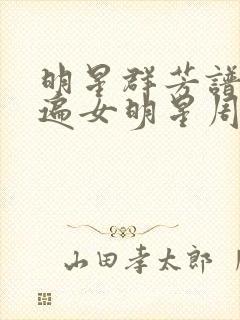 明星群芳譜
遍女明星周
山田孝太郎